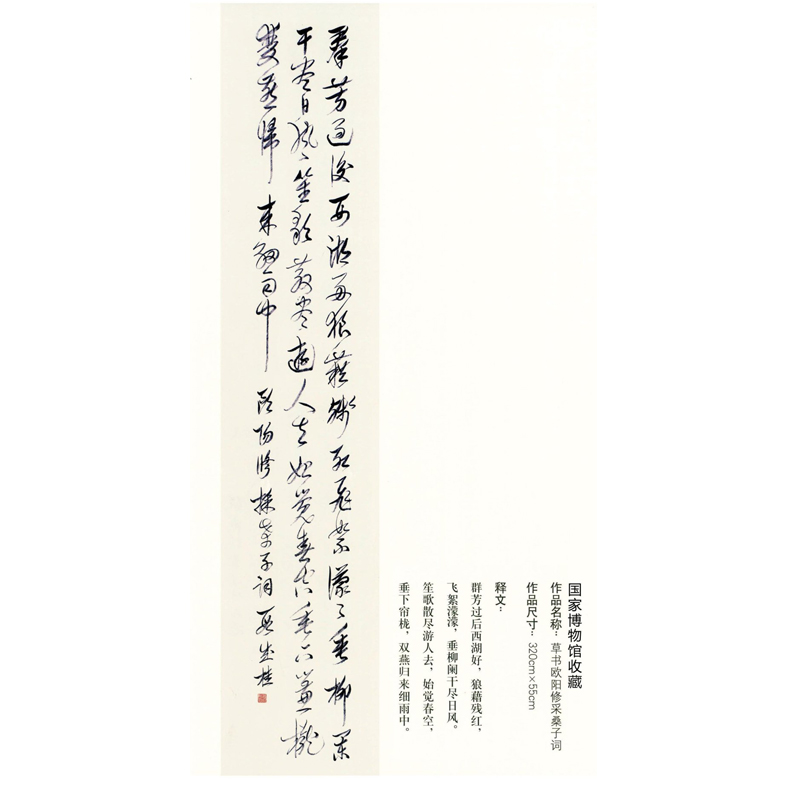 国家博物馆收藏
作品名称：草书欧阳修采桑子词
作品尺寸：320cm×55cm
释文：
群芳过后西湖好，狼藉残红，
飞絮濛濛，垂柳阑干尽日风。
笙歌散尽游人去，始觉春空，
垂下帘栊，双燕归来细雨中。
羣芳過後西湖好狼藉殘紅飛絮濛〻垂柳闌
干尽日風笙歌散尽遊人去始覺春空垂下簾櫳
雙燕歸來細雨中 歐陽修採桑子詞 段成桂